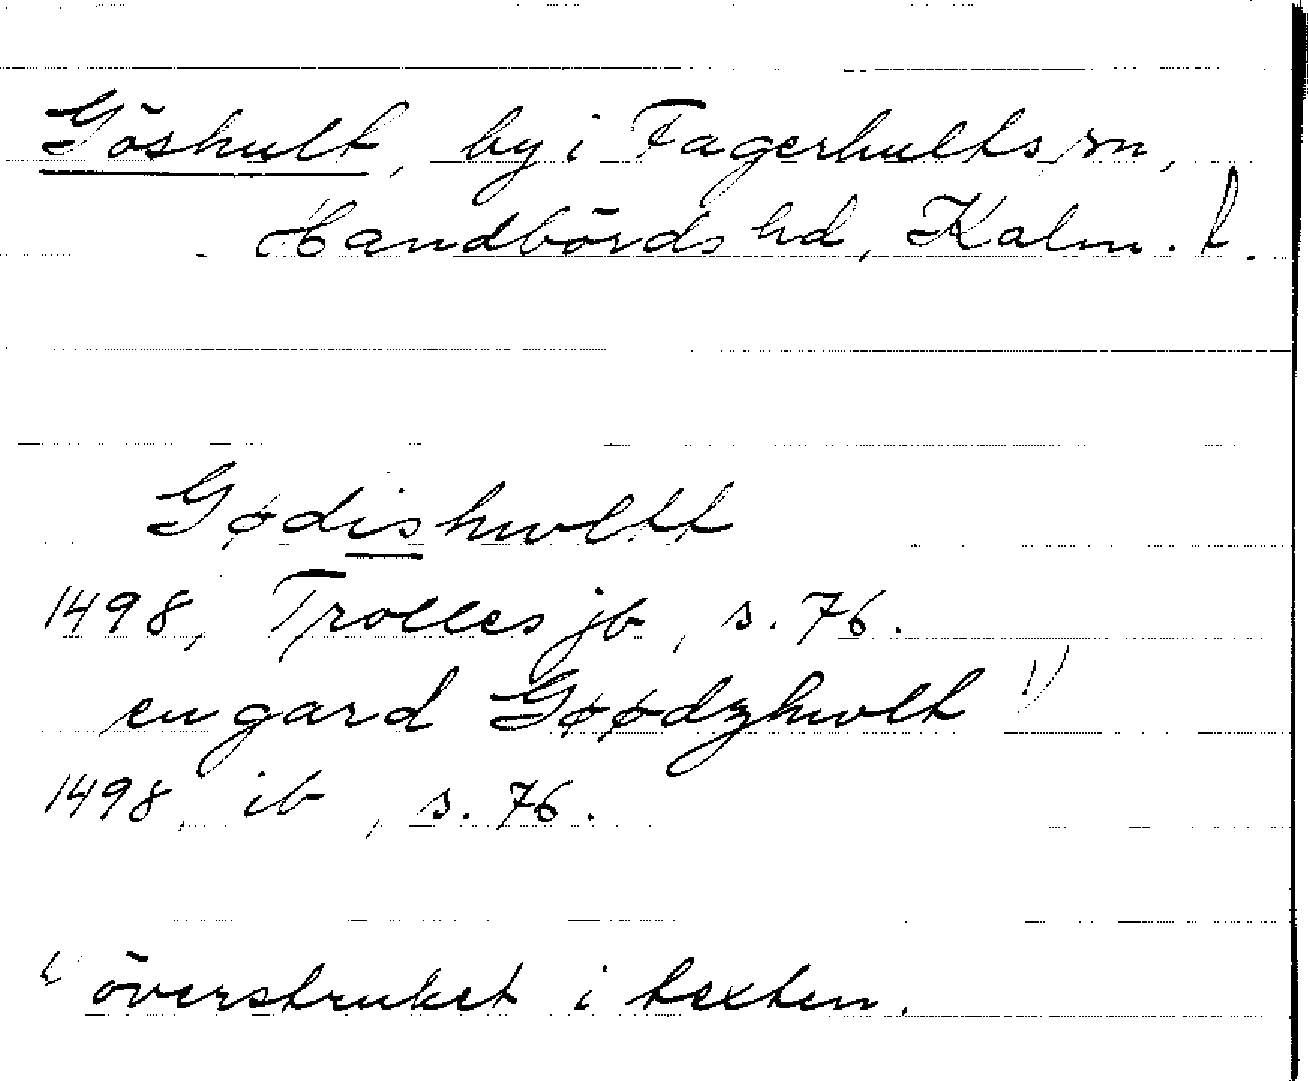 Göshult, by i Fagerhults sn,
Handbörds hd, Kalm. l.
Gødishwltt
1498, Trolles jb, s. 76.
en gard Gøødzhwlt 1)
1498, ib, s. 76.
1) överstruket i texten.